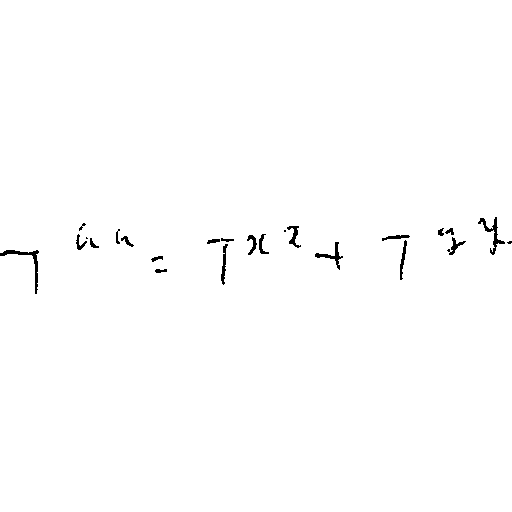 T^{uu} = T^{xx} + T^{yy}